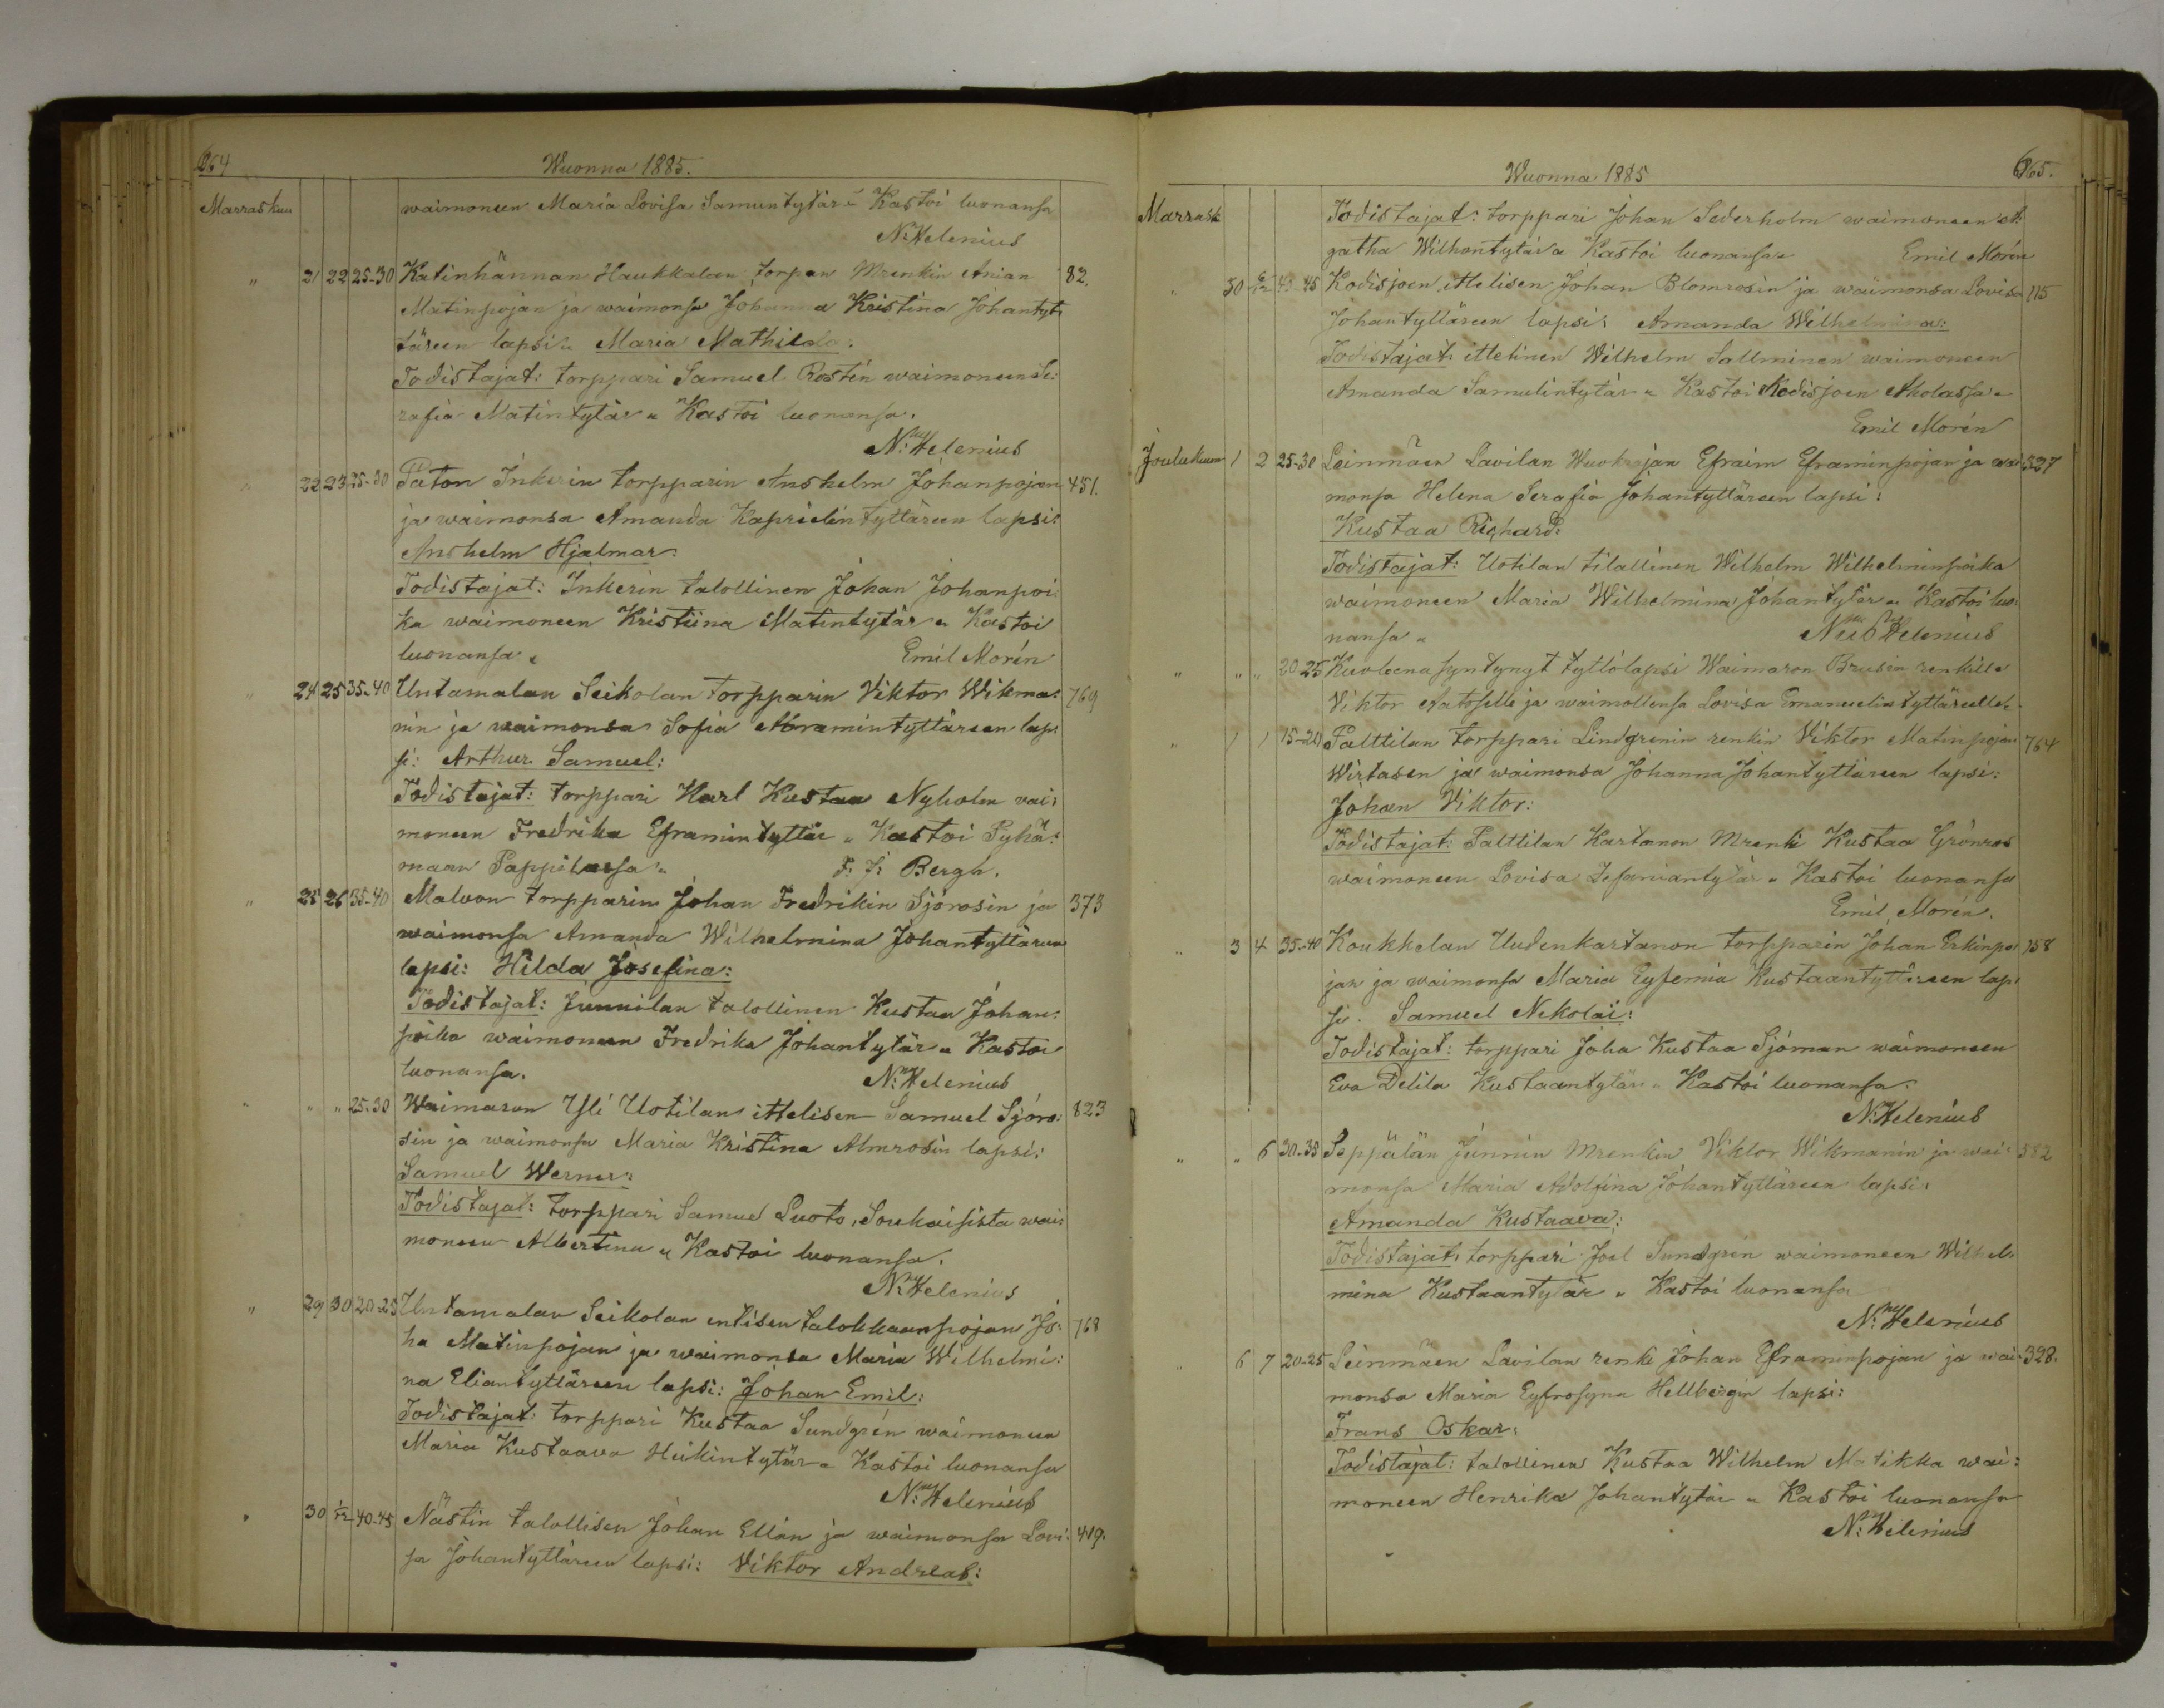 664
Wuonna 1885.
Marraskuu
waimoneen Maria Lovisa Samuntytär " Kastoi luonansa
N. Helenius
" 21 22 25-30 Katinhännan Haukkalan torpan Mrenkin Anian 82.
Matinpojan ja waimonsa Johanna Kristina Johantyt:
täreen lapsi: Maria Mathilda.
Todistajat: torppari Samuel Rostén waimoneen Se:
rafia Matintytär " Kastoi luonansa.
N. Helenius
22 23 25-30 Paton Inkerin torpparin Anshelm Johanpojan 451.
ja waimonsa Amanda Kaprielintyttäreen lapsi:
Anshelm Hjalmar:
Todistajat: Inkerin talollinen Johan Johanpoi:
ka waimoneen Kristiina Matintytär " Kastoi
luonansa " Emil Morén
" 24 25 35-40 Untamalan Seikolan torpparin Viktor Wikma: 769
nin ja waimonsa Sofia Abramintyttäreen lap:
si: Arthur Samuel:
Todistajat: torppari Karl Kustaa Nyholm vai:
moneen Fredrika Eframintyttär " Kastoi Pyhä:
maan Pappilassa " F. J. Bergh.
" 25 26 35-40 Malvon torpparin Johan Fredrikin Sjörosin ja 373
waimonsa Amanda Wilhelmina Johantyttäreen
lapsi: Hilda Josefina:
Todistajat: Junnilan talollinen Kustaa Johan:
poika waimoneen Fredrika Johantytär " Kastoi
luonansa. N. Helenius
" " " 25-30 Waimaron Yli Uotilan ittelisen Samuel Sjöro: 823
sin ja waimonsa Maria Kristina Almrosin lapsi:
Samuel Werner:
Todistajat: torppari Samuel Luoto, Soukaisista wai:
moneen Albertina " Kastoi luonansa.
N. Helenius
" 29 30 20-25 Untamalan Seikolan entisen talokkaanpojan Jo: 768
ha Matinpojan ja waimonsa Maria Wilhelmi:
na Eliantyttäreen lapsi: Johan Emil:
Todistajat: torppari Kustaa Sundgrén waimoneen
Maria Kustaava Heikintytär " Kastoi luonansa
N. Helenius
" 30 1/12 40-45 Nästin talollisen Johan Ellän ja waimonsa Lovi: 419.
sa Johantyttäreen lapsi: Viktor Andreas:
Wuonna 1885
665.
Marrask
Todistajat: torppari Johan Sederholm waimoneen A:
gatha Wilhontytär " Kastoi luonansa " Emil Morén
" 30 6/12 40-45 Kodisjoen ittelisen Johan Blomrosin ja waimonsa Lovisa 115
Johantyttäreen lapsi: Amanda Wilhelmina:
Todistajat: ittelinen Wilhelm Sallminen waimoneen
Amanda Samulintytär " Kastoi Kodisjoen Aholassa "
Emil Morén
Joulukuun 1 2 25-30 Leinmäen Lavilan Wuokrajan Efraim Eframinpojan ja wai: 327
monsa Helena Serafia Johantyttäreen lapsi:
Kustaa Righard:
Todistajat: Uotilan tilallinen Wilhelm Wilhelminpoika
waimoneen Maria Wilhelmina Johantytär " Kastoi luo:
nansa " Helenius
" " " 20-25 Kuoleena syntynyt tyttölapsi Waimaron Brusin renkille
Viktor Aatoselle ja waimollensa Lovisa Emanuelintyttärelle
" 1 1 15-20 Palttilan torppari Lindgrenin renkin Viktor Matinpojan 764
Wirtasen ja waimonsa Johanna Johantyttäreen lapsi:
Johan Viktor:
Todistajat: Palttilan Kartanon Mrenki Kustaa Grönros
waimoneen Lovisa Jesaiantytär " Kastoi luonansa
Emil Morén.
" 3 4 35-40 Koukkelan Uudenkartanon torpparin Johan Erkinpo: 158
jan ja waimonsa Maria Eyfemia Kustaantyttäreen lap:
si. Samuel Nikolai:
Todistajat: torppari Joha Kustaa Sjöman waimoneen
Eva Delila Kustaantytär " Kastoi luonansa.
N. Helenius
" " 6 30-35 Seppälän Junnin Mrenkin Viktor Wikmanin ja wai: 582
monsa Maria Adolfina Johantyttäreen lapsi:
Amanda Kustaava:
Todistajat: torppari Joel Sundgrén waimoneen Wilhel:
mina Kustaantytär " Kastoi luonansa
N. Helenius
" 6 7 20-25 Leinmäen Lavilan renki Johan Eframinpojan ja wai: 328.
monsa Maria Eyfrosyna Hellbergin lapsi:
Frans Oskar:
Todistajat: talollinen Kustaa Wilhelm Matikka wai:
moneen Henrika Johantytär " Kastoi luonansa
N. Helenius